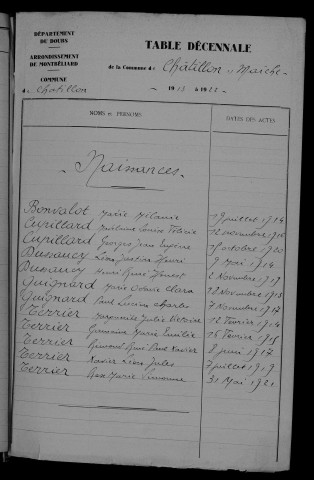 DÉPARTEMENT
DU DOUBS
ARRONDISSEMENT
DE MONTBÉLIARD
COMMUNE
de Chatillon
TABLE DÉCENNALE
de la Commune de Châtillon s/ Maiche
1913 à 1922
NOMS et PRÉNOMS
DATES DES ACTES
Naissances
Bonvalot Marie Mélanie 19 juillet 1914
Cupillard Louise Félicie 12 novembre 1916
Cupillard Georges Jean Eugène 18 octobre 1920
Dussaucy Léon Justin Henri 9 Mai 1914
Dussaucy Henri René Ernest 2 Novembre 1919
Guignard Marie Clara 18 Novembre 1913
Guignard Paul Lucien Charles 7 Novembre 1917
Terrier Julie Victoire 12 Février 1914
Terrier Germaine Marie Emilie 16 Février 1915
Terrier Raymond René Paul Xavier 8 juin 1917
Terrier Xavier Léon Jules 7 juillet 1919
Terrier Rose Marie 31 Mai 1921